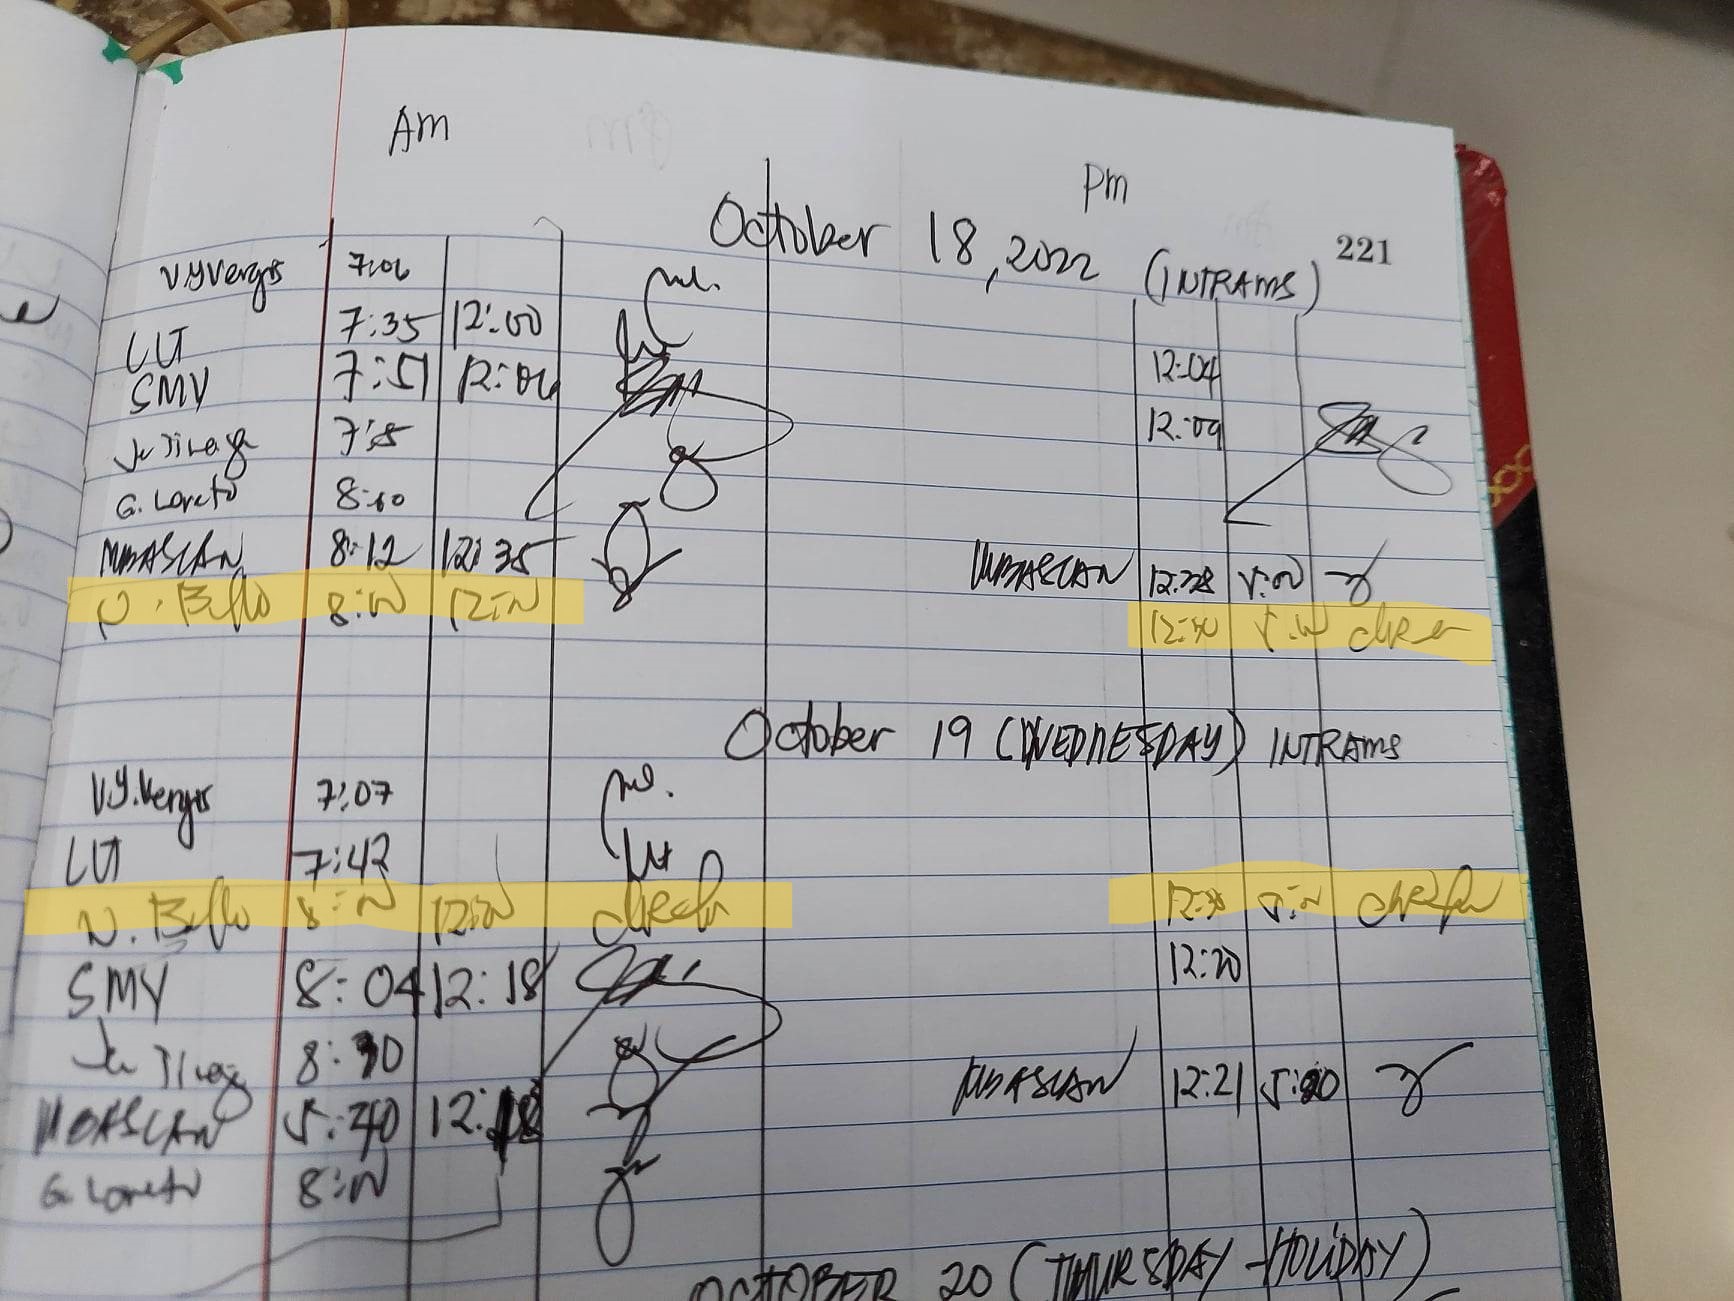 Am
pm
October 18, 2022 (INTRAMS) 221
V.Y Vergs 7:06
LUT 7:35 12:00
SMY 7:51 12:06 12:04
7:58 12:09
G. Loreto 8:00
MBASCAN 8:12 12:35 MBASCAN 12:38 5:00
N. Bello 8:00 12:00 12:30 5:00
October 19 (WEDNESDAY) INTRAMS
V.Y. Vergs 7:07
LUT 7:42
N. Bello 8:00 12:00 12:30 5:00
SMY 8:04 12:18 12:20
8:30
MBASCAN 5:40 12:18 MBASCAN 12:21 5:00
G. Loreto 8:00
OCTOBER 20 (THURSDAY - HOLIDAY)